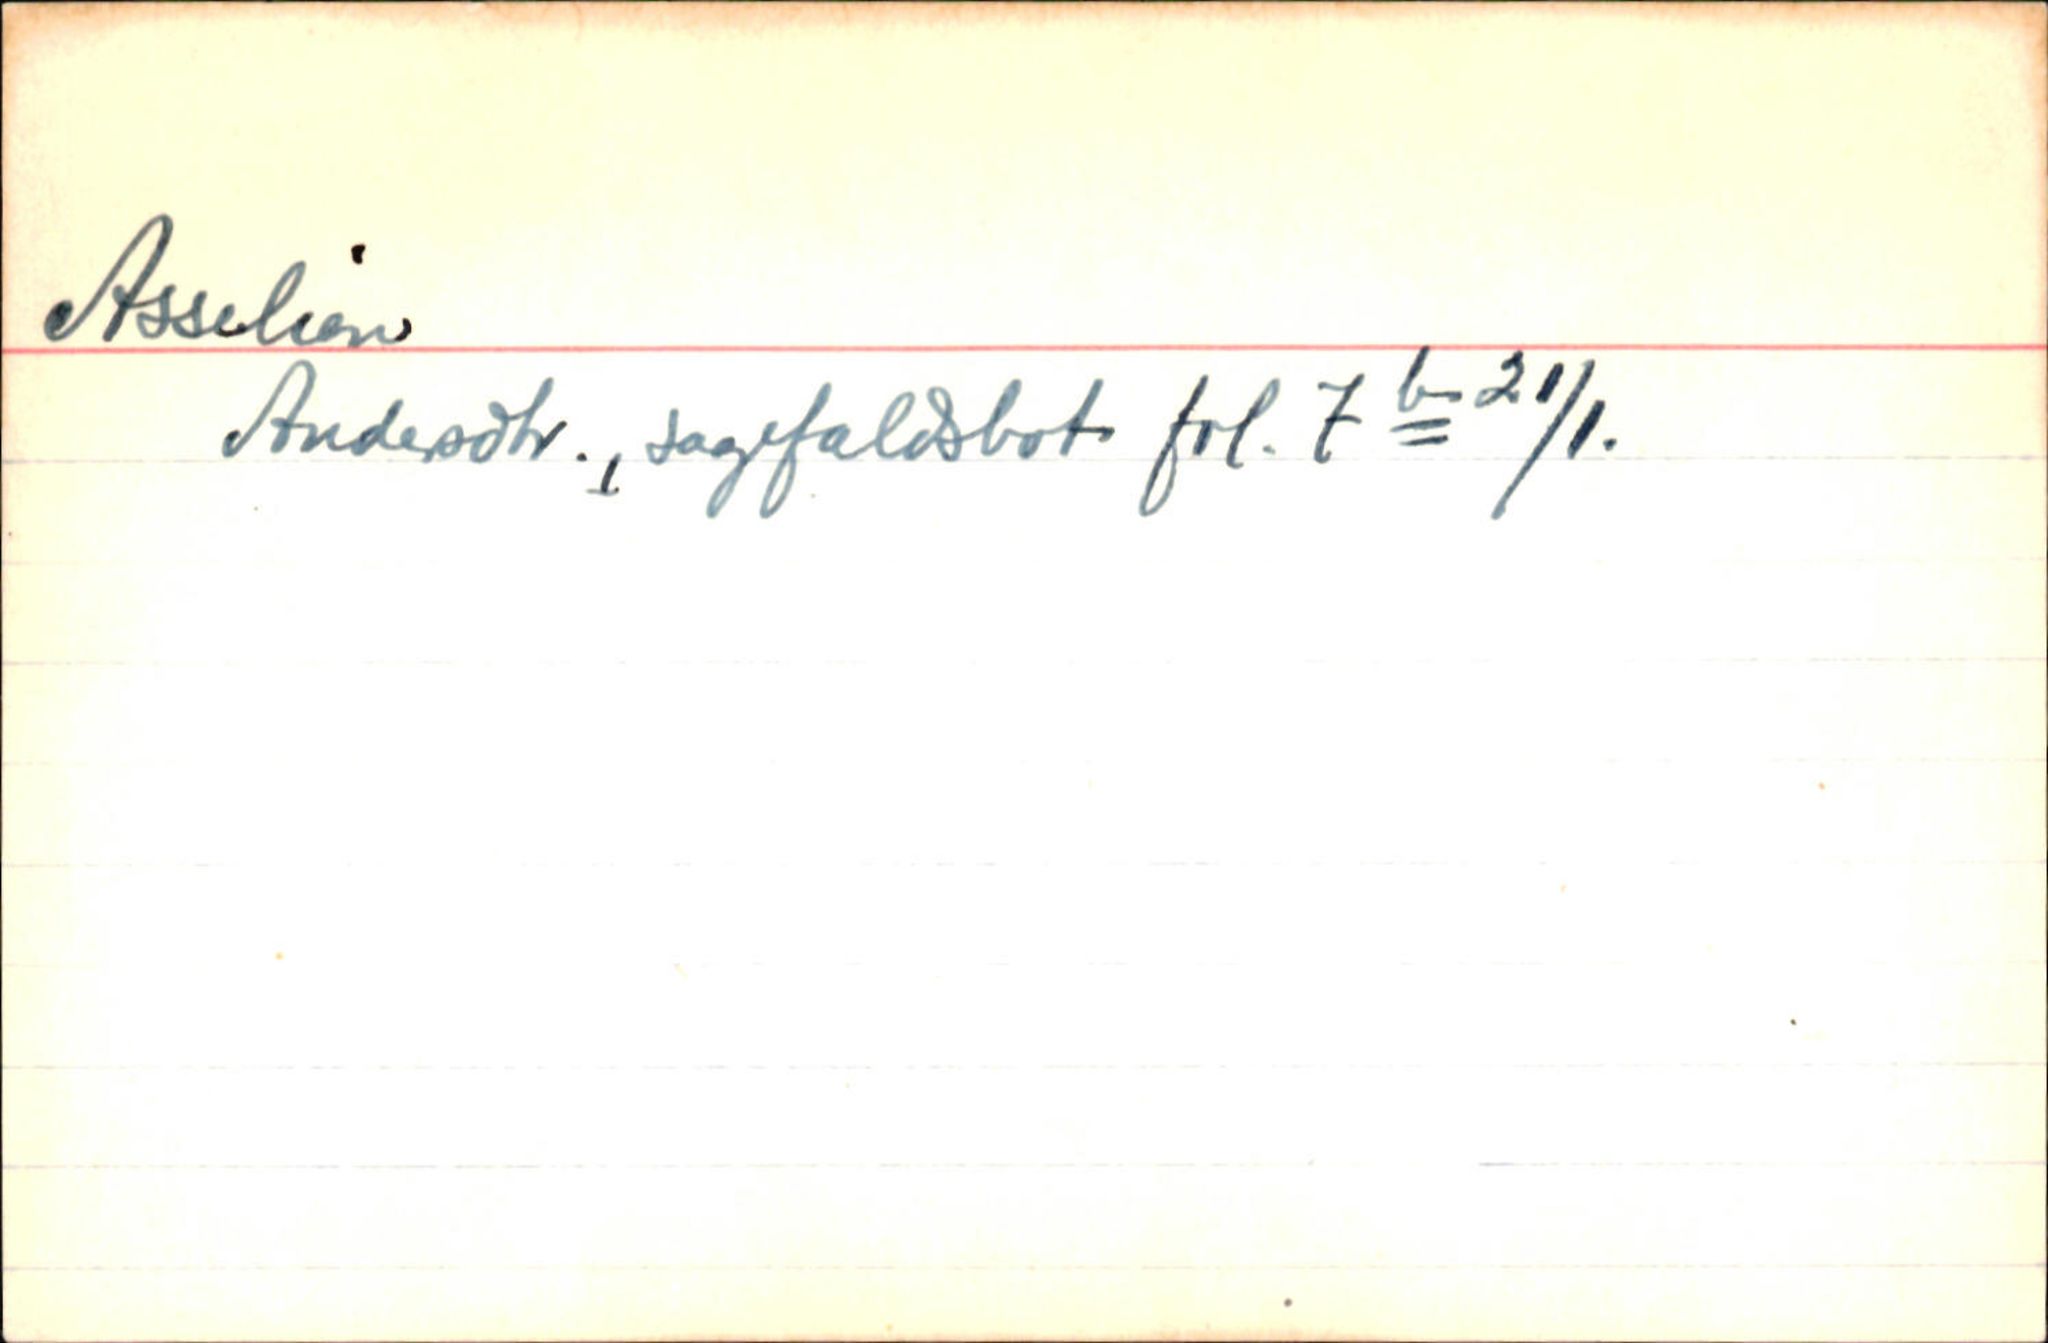 Asselien
Andersdtr., sagefaldsbot fol. 7 b 21/1.